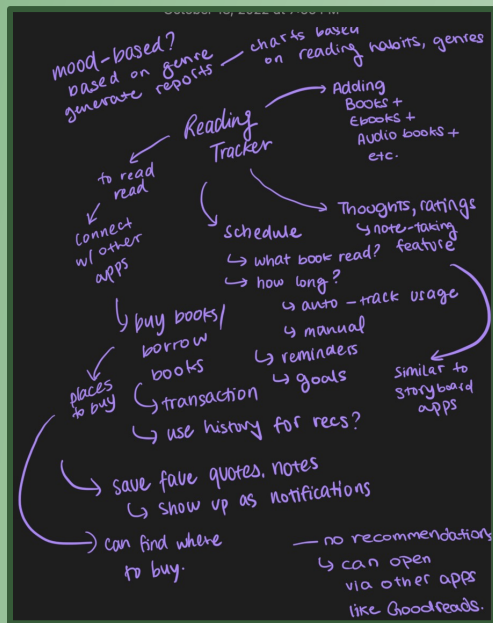 mood-based?
based on genre
generate reports — charts based
on reading habits, genres
Reading
Tracker
Adding
Books +
Ebooks +
Audio books +
etc.
to read
read
connect
w/ other
apps
schedule
↳ what book read?
↳ how long?
↳ auto-track usage
↳ manual
↳ reminders
↳ goals
Thoughts, ratings
↳ note-taking
feature
similar to
storyboard
apps
buy books/
borrow
books
↳ transaction
↳ use history for recs?
places
to buy
save fave quotes, notes
↳ show up as notifications
can find where
to buy.
— no recommendations
↳ can open
via other apps
like Goodreads.